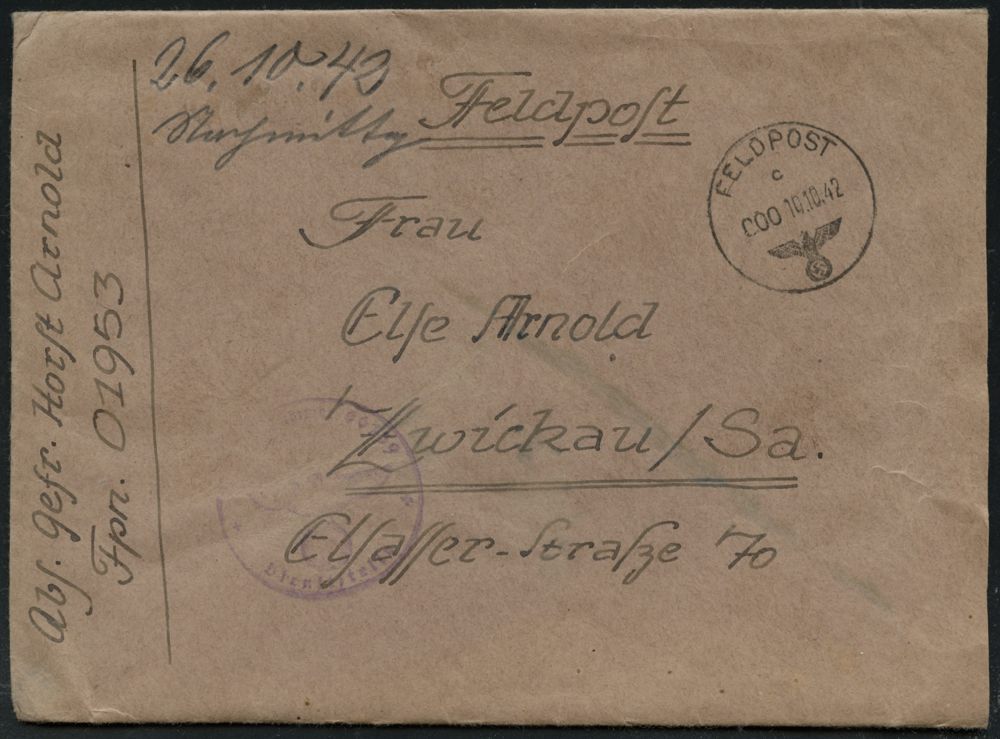 26.10.42
Nachmittag
Feldpost
FELDPOST
c
000 10.10.42
Frau
Elſe Arnold
Zwickau/Sa.
Elſaſſer-Straße 70
Abſ. Gefr. Horſt Arnold
Fpn. 01953
Dienſtſtelle